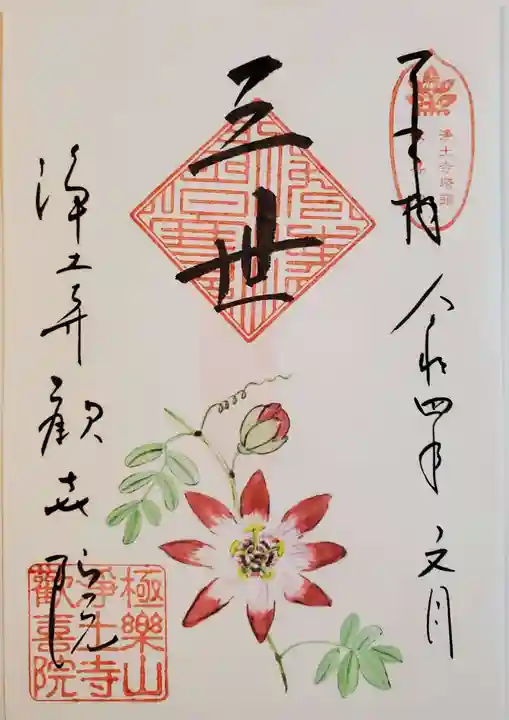 奉拝 令和四年 文月
浄土寺塔頭
三世
浄土寺歓喜院
極樂山
浄土寺
歡喜院